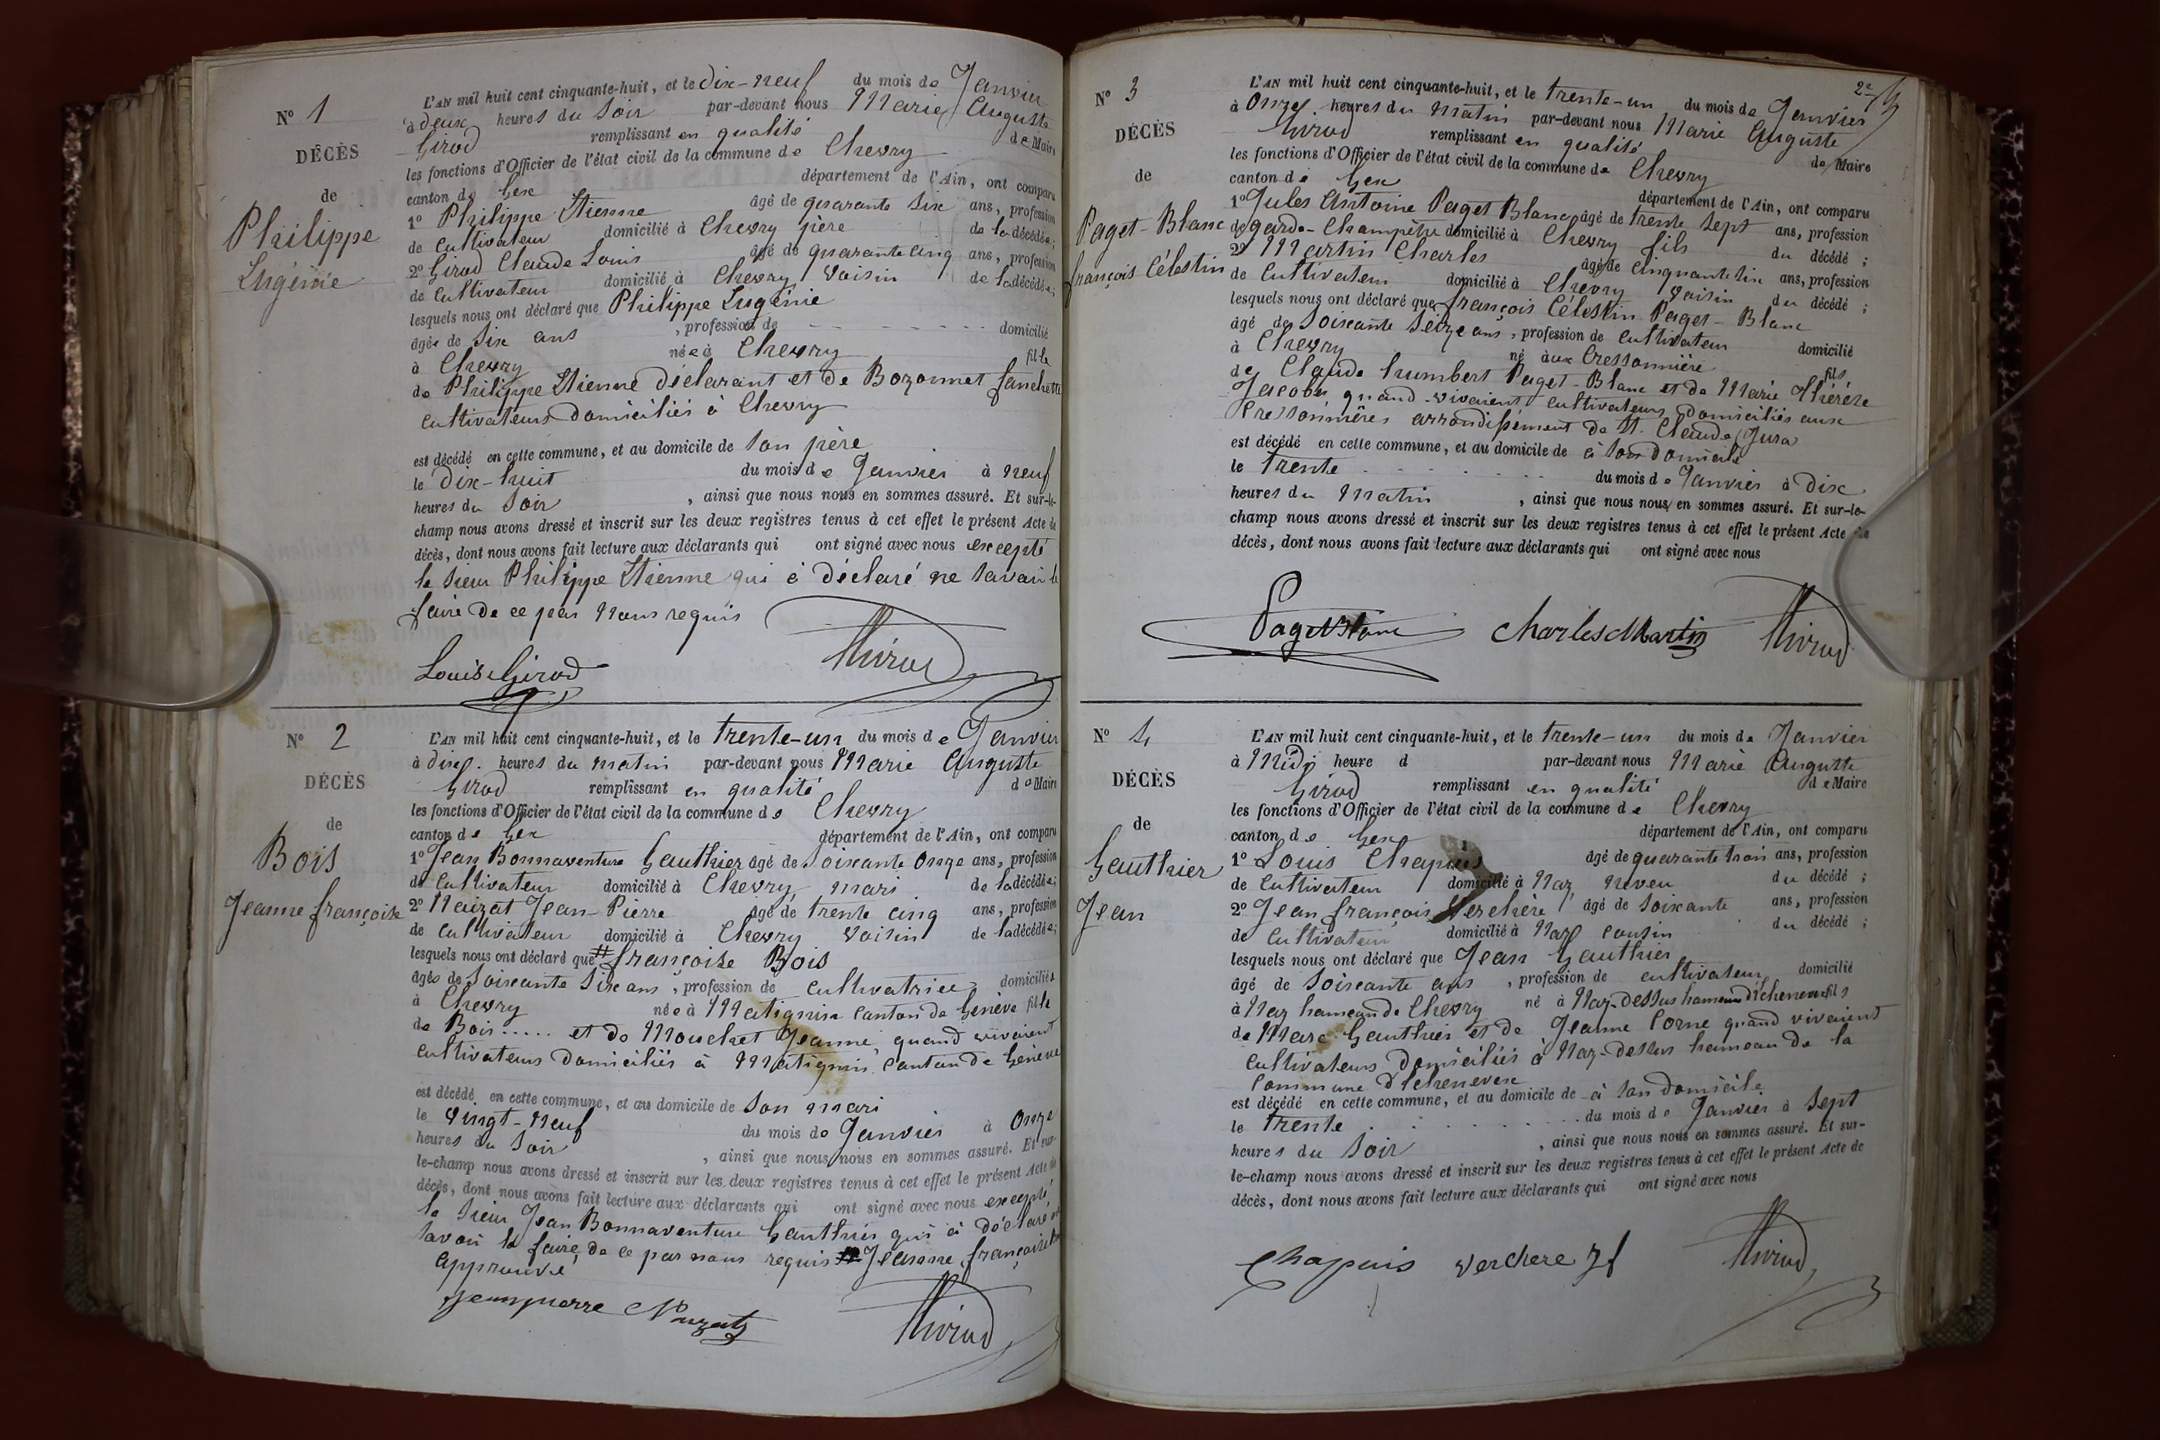 N° 1
DÉCÈS
de
Philippe
Eugénie
L'AN mil huit cent cinquante-huit, et le dix-neuf du mois de Janvier
à deux heures du soir par-devant nous Marie Auguste
Girod remplissant en qualité de Maire
les fonctions d'Officier de l'état civil de la commune de Chevry
canton de Gex département de l'Ain, ont comparu
1° Philippe Etienne âgé de quarante six ans, profession
de cultivateur domicilié à Chevry père de la décédée;
2° Girod Claude Louis âgé de quarante cinq ans, profession
de cultivateur domicilié à Chevry voisin de la décédée;
lesquels nous ont déclaré que Philippe Eugénie
âgée de six ans , profession de - - - - - domicilié
à Chevry née à Chevry fille
de Philippe Etienne déclarant et de Bozonnet fanchette
cultivateurs domiciliés à Chevry
est décédé en cette commune, et au domicile de son père
le dix-huit du mois de Janvier à neuf
heures du soir , ainsi que nous nous en sommes assuré. Et sur-le-
champ nous avons dressé et inscrit sur les deux registres tenus à cet effet le présent Acte de
décès, dont nous avons fait lecture aux déclarants qui ont signé avec nous excepté
le sieur Philippe Etienne qui à déclaré ne savoir le
faire de ce par Nous requis
Louis Girod Girod
N° 2
DÉCÈS
de
Bois
Jeanne françoise
L'AN mil huit cent cinquante-huit, et le trente-un du mois de Janvier
à dix heures du matin par-devant nous Marie Auguste
Girod remplissant en qualité de Maire
les fonctions d'Officier de l'état civil de la commune de Chevry
canton de Gex département de l'Ain, ont comparu
1° Jean Bonnaventure Gauthier âgé de soixante onze ans, profession
de cultivateur domicilié à Chevry mari de la décédée;
2° Naizat Jean-Pierre âgé de trente cinq ans, profession
de cultivateur domicilié à Chevry voisin de la décédée;
lesquels nous ont déclaré que # françoise Bois
âgée de soixante six ans , profession de cultivatrice domiciliée
à Chevry née à Matignin canton de Genève fille
de Bois ..... et de Mouchet Jeanne, quand vivaient
cultivateurs domiciliés à Matignin canton de Genève
est décédé en cette commune, et au domicile de son mari
le vingt-neuf du mois de Janvier à onze
heures du soir , ainsi que nous nous en sommes assuré. Et sur-
le-champ nous avons dressé et inscrit sur les deux registres tenus à cet effet le présent Acte de
décès, dont nous avons fait lecture aux déclarants qui ont signé avec nous excepté
le sieur Jean Bonnaventure Gauthier qui à déclaré ne
savoir le faire de ce par nous requis # Jeanne françoise
approuvé
Jeanpierre Girod
N° 3
DÉCÈS
de
Paget-Blanc
françois Célestin
L'AN mil huit cent cinquante-huit, et le trente-un du mois de Janvier
à onze heures du matin par-devant nous Marie Auguste
Girod remplissant en qualité de Maire
les fonctions d'Officier de l'état civil de la commune de Chevry
canton de Gex département de l'Ain, ont comparu
1° Jules Antoine Paget Blanc âgé de trente sept ans, profession
de garde-champêtre domicilié à Chevry fils du décédé;
2° Martin Charles âgé de cinquante six ans, profession
de cultivateur domicilié à Chevry voisin du décédé;
lesquels nous ont déclaré que françois Célestin Paget-Blanc
âgé de soixante seize ans, profession de cultivateur domicilié
à Chevry né aux Cressonnière fils
de Claude humbert Paget-Blanc et de Marie thérèze
quand vivaient cultivateurs domiciliés aux
Cressonnières arrondissement de St. Claude (Jura)
est décédé en cette commune, et au domicile de à son domicile
le trente du mois de Janvier à dix
heures du matin , ainsi que nous nous en sommes assuré. Et sur-le-
champ nous avons dressé et inscrit sur les deux registres tenus à cet effet le présent Acte de
décès, dont nous avons fait lecture aux déclarants qui ont signé avec nous
Paget Blanc Charles Martin Girod
N° 4
DÉCÈS
de
Gauthier
Jean
L'AN mil huit cent cinquante-huit, et le trente-un du mois de Janvier
à Midi heure d par-devant nous Marie Auguste
Girod remplissant en qualité de Maire
les fonctions d'Officier de l'état civil de la commune de Chevry
canton de Gex département de l'Ain, ont comparu
1° Louis Chapuis âgé de quarante trois ans, profession
de cultivateur domicilié à Naz neveu du décédé;
2° Jean françois Verchère âgé de soixante ans, profession
de cultivateur domicilié à Naz cousin du décédé;
lesquels nous ont déclaré que Jean Gauthier
âgé de soixante ans , profession de cultivateur domicilié
à Naz hameau de Chevry né à Naz-dessus hameau d'Echenevex fils
de Marc Gauthier et de Jeanne Corne quand vivaient
cultivateurs domiciliés à Naz-dessus hameau de la
commune d'Echenevex
est décédé en cette commune, et au domicile de à son domicile
le trente du mois de Janvier à sept
heures du soir , ainsi que nous nous en sommes assuré. Et sur-
le-champ nous avons dressé et inscrit sur les deux registres tenus à cet effet le présent Acte de
décès, dont nous avons fait lecture aux déclarants qui ont signé avec nous
Chapuis Verchere Jf Girod